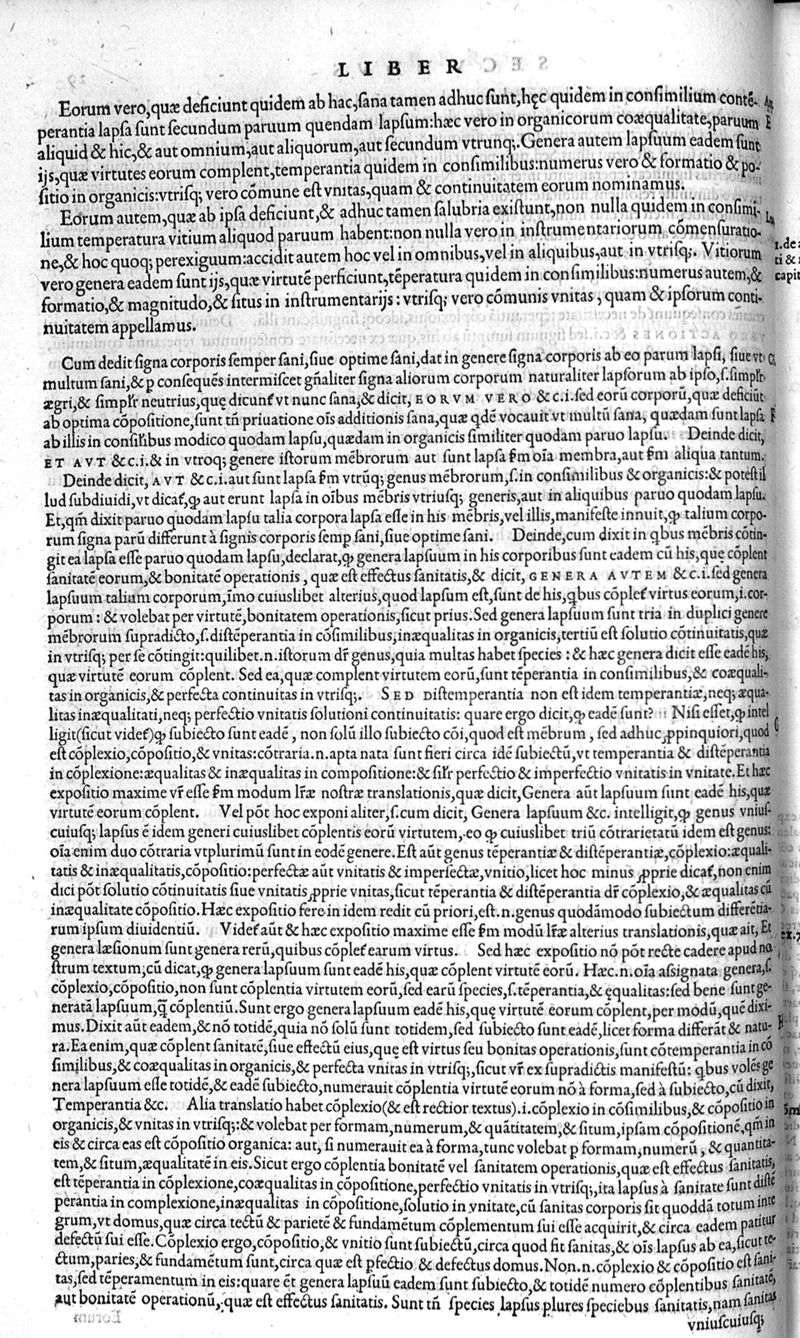 LIBER
Eorum vero, quæ deficiunt quidem ab hac, sana tamen adhuc sunt, hęc quidem in consimilium contẽ-
perantia lapsa sunt secundum paruum quendam lapsum: hæc vero in organicorum coæqualitate, paruum
aliquid & hic, & aut omnium, aut aliquorum, aut secundum vtrunq;. Genera autem lapsuum eadem sunt
ijs, quæ virtutes eorum complent, temperantia quidem in consimilibus: numerus vero & formatio & po-
sitio in organicis: vtrisq; vero cõmune est vnitas, quam & continuitatem eorum nominamus.
Eorum autem, quæ ab ipsa deficiunt, & adhuc tamen salubria existunt, non nulla quidem in consimi-
lium temperatura vitium aliquod paruum habent: non nulla vero in instrumentariorum cõmensuratio-
ne, & hoc quoq; perexiguum: accidit autem hoc vel in omnibus, vel in aliquibus, aut in vtrisq;. Vitiorum
vero genera eadem sunt ijs, quæ virtutẽ perficiunt, tẽperatura quidem in consimilibus: numerus autem, &
formatio, & magnitudo, & situs in instrumentarijs: vtrisq; vero cõmunis vnitas, quam & ipsorum conti-
nuitatem appellamus.
Cum dedit signa corporis semper sani, siue optime sani, dat in genere signa corporis ab eo parum lapsi, siue vt
multum sani, & p consequẽs intermiscet gñaliter signa aliorum corporum naturaliter lapsorum ab ipso, s. simplr̃
ægri, & simplr̃ neutrius, quę dicunt̃ vt nunc sana, & dicit, EORVM VERO & c. i. sed eorũ corporũ, quæ deficiũt
ab optima cõpositione, sunt tñ priuatione oĩs additionis sana, quæ qdẽ vocauit vt multũ sana, quædam sunt lapsa
ab illis in consil̃ibus modico quodam lapsu, quædam in organicis similiter quodam paruo lapsu. Deinde dicit,
ET AVT & c. i. & in vtroq; genere istorum mẽbrorum aut sunt lapsa s̃m oĩa membra, aut s̃m aliqua tantum.
Deinde dicit, AVT & c. i. aut sunt lapsa s̃m vtrũq; genus mẽbrorum, s. in consimilibus & organicis: & potest il
lud subdiuidi, vt dicat̃, ꝙ aut erunt lapsa in oĩbus mẽbris vtriusq; generis, aut in aliquibus paruo quodam lapsu.
Et, qm̃ dixit paruo quodam lapsu talia corpora lapsa esse in his mẽbris, vel illis, manifeste innuit, ꝙ talium corpo-
rum signa parũ differunt à signis corporis semp sani, siue optime sani. Deinde, cum dixit in qbus mẽbris cõtin-
git ea lapsa esse paruo quodam lapsu, declarat, ꝙ genera lapsuum in his corporibus sunt eadem cũ his, quę cõplent
sanitatẽ eorum, & bonitatẽ operationis, quæ est effectus sanitatis, & dicit, GENERA AVTEM & c. i. sed genera
lapsuum talium corporum, ĩmo cuiuslibet alterius, quod lapsum est, sunt de his, qbus cõplet̃ virtus eorum, i. cor-
porum: & volebat per virtutẽ, bonitatem operationis, sicut prius. Sed genera lapsuum sunt tria in duplici genere
mẽbrorum supradicto, s. distẽperantia in cõsimilibus, inæqualitas in organicis, tertiũ est solutio cõtinuitatis, quæ
in vtrisq; per sẽ cõtingit: quilibet. n. istorum dr̃ genus, quia multas habet species: & hæc genera dicit esse eadẽ his,
quæ virtutẽ eorum cõplent. Sed ea, quæ complent virtutem eorũ, sunt tẽperantia in consimilibus, & coæquali-
tas in organicis, & perfecta continuitas in vtrisq;. SED distemperantia non est idem temperantiæ, neq; æqua-
litas inæqualitati, neq; perfectio vnitatis solutioni continuitatis: quare ergo dicit, ꝙ eadẽ sunt? Nisi esset, ꝙ intel
ligit (sicut videt̃) ꝙ subiecto sunt eadẽ, non solũ illo subiecto cõi, quod est mẽbrum, sed adhuc ꝓpinquiori, quod
est cõplexio, cõpositio, & vnitas: cõtraria. n. apta nata sunt fieri circa idẽ subiectũ, vt temperantia & distẽperantia
in cõplexione: æqualitas & inæqualitas in compositione: & sil̃r perfectio & imperfectio vnitatis in vnitate. Et hæc
expositio maxime vr̃ esse s̃m modum lr̃æ nostræ translationis, quæ dicit, Genera aũt lapsuum sunt eadẽ his, quæ
virtutẽ eorum cõplent. Vel põt hoc exponi aliter, s. cum dicit, Genera lapsuum & c. intelligit, ꝙ genus vnius-
cuiusq; lapsus ẽ idem generi cuiuslibet cõplentis eorũ virtutem, eo ꝙ cuiuslibet triũ cõtrarietatũ idem est genus:
oĩa enim duo cõtraria vtplurimũ sunt in eodẽ genere. Est aũt genus tẽperantiæ & distẽperantiæ, cõplexio: æquali-
tatis & inæqualitatis, cõpositio: perfectæ aũt vnitatis & imperfectæ, vnitio, licet hoc minus ꝓprie dicat̃, non enim
dici põt solutio cõtinuitatis siue vnitatis ꝓprie vnitas, sicut tẽperantia & distẽperantia dr̃ cõplexio, & æqualitas cũ
inæqualitate cõpositio. Hæc expositio fere in idem redit cũ priori, est. n. genus quodãmodo subiectum differẽtia-
rum ipsum diuidentiũ. Videt̃ aũt & hæc expositio maxime esse s̃m modũ lr̃æ alterius translationis, quæ ait, Et
genera læsionum sunt genera rerũ, quibus cõplet̃ earum virtus. Sed hæc expositio nõ põt recte cadere apud no
strum textum, cũ dicat, ꝙ genera lapsuum sunt eadẽ his, quæ cõplent virtutẽ eorũ. Hæc. n. oĩa assignata genera, s.
cõplexio, cõpositio, non sunt cõplentia virtutem eorũ, sed earũ species, s. tẽperantia, & ęqualitas: sed bene sunt ge-
neratã lapsuum, q̃ cõplentiũ. Sunt ergo genera lapsuum eadẽ his, quę virtutẽ eorum cõplent, per modũ, quẽ dixi-
mus. Dixit aũt eadem, & nõ totidẽ, quia nõ solũ sunt totidem, sed subiecto sunt eadẽ, licet forma differãt & natu-
ra. Ea enim, quæ cõplent sanitatẽ, siue effectũ eius, quę est virtus seu bonitas operationis, sunt cõtemperantia in cõ
similibus, & coæqualitas in organicis, & perfecta vnitas in vtrisq;, sicut vr̃ ex supradictis manifestũ: qbus volẽs ge
nera lapsuum esse totidẽ, & eadẽ subiecto, numerauit cõplentia virtutẽ eorum nõ à forma, sed à subiecto, cũ dixit,
Temperantia & c. Alia translatio habet cõplexio (& est rectior textus). i. cõplexio in cõsimilibus, & cõpositio in
organicis, & vnitas in vtrisq;: & volebat per formam, numerum, & quãtitatem, & situm, ipsam cõpositionẽ, qm̃ in
eis & circa eas est cõpositio organica: aut, si numerauit ea à forma, tunc volebat p formam, numerũ, & quantita-
tem, & situm, æqualitatẽ in eis. Sicut ergo cõplentia bonitatẽ vel sanitatem operationis, quæ est effectus sanitatis,
est tẽperantia in cõplexione, coæqualitas in cõpositione, perfectio vnitatis in vtrisq;, ita lapsus à sanitate sunt distẽ
perantia in complexione, inæqualitas in cõpositione, solutio in vnitate, cũ sanitas corporis sit quoddã totum inte
grum, vt domus, quæ circa tectũ & parietẽ & fundamẽtum cõplementum sui esse acquirit, & circa eadem patitur
defectũ sui esse. Cõplexio ergo, cõpositio, & vnitio sunt subiectũ, circa quod fit sanitas, & oĩs lapsus ab ea, sicut te-
ctum, paries, & fundamẽtum sunt, circa quæ est pfectio & defectus domus. Non. n. cõplexio & cõpositio est sani-
tas, sed tẽperamentum in eis: quare ẽt genera lapsuũ eadem sunt subiecto, & totidẽ numero cõplentibus sanitatẽ,
aut bonitatẽ operationũ, quæ est effectus sanitatis. Sunt tñ species lapsus plures speciebus sanitatis, nam sanitas
vniuscuiusq;